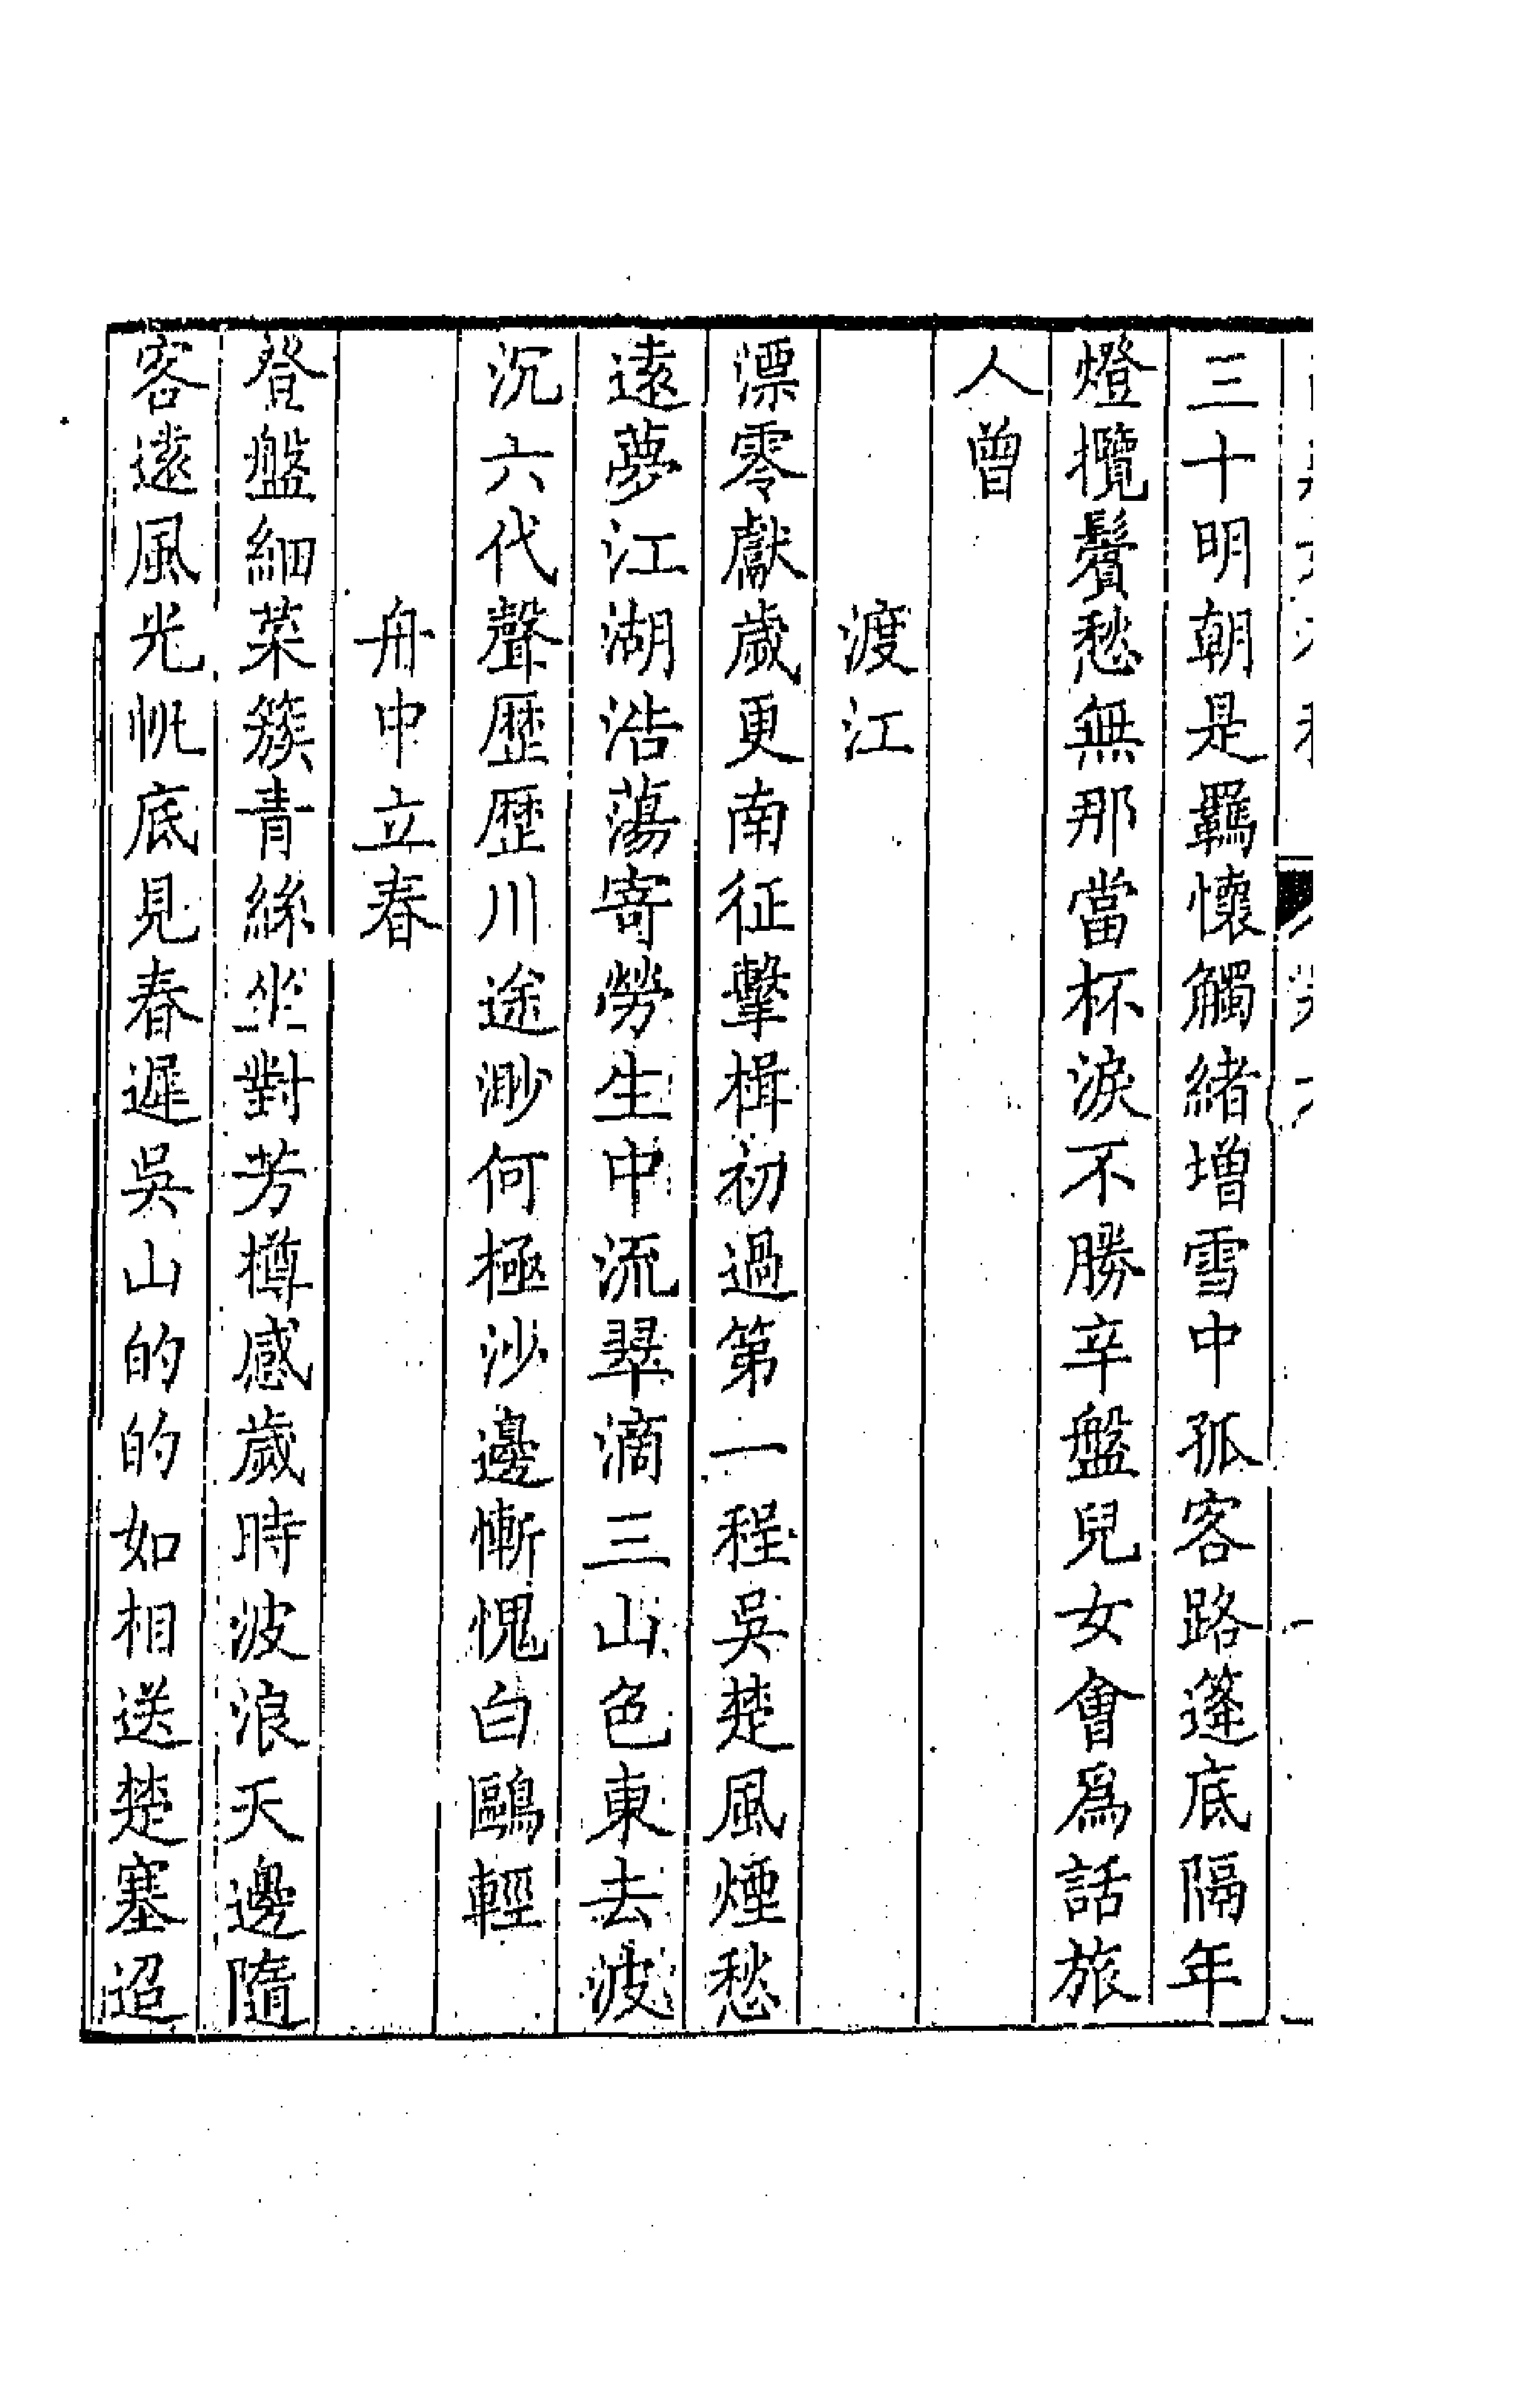 三十明朝是羈懷觸緒増雪中孤客路蓬底隔年
燈攬鬢愁無那當杯淚不勝辛盤兒女會爲話旅
人曾
渡江
漂零獻歲更南征擊楫初過第一程吳楚風煙愁
遠夢江湖浩蕩寄勞生中流翠滴三山色東去波
沉六代聲歷歷川途渺何極沙邊慚愧白鷗輕
舟中立春
登盤細菜簇青絲坐對芳樽感歲時波浪天邊隨
客遠風光帆底見春遲吳山的的如相送楚塞迢